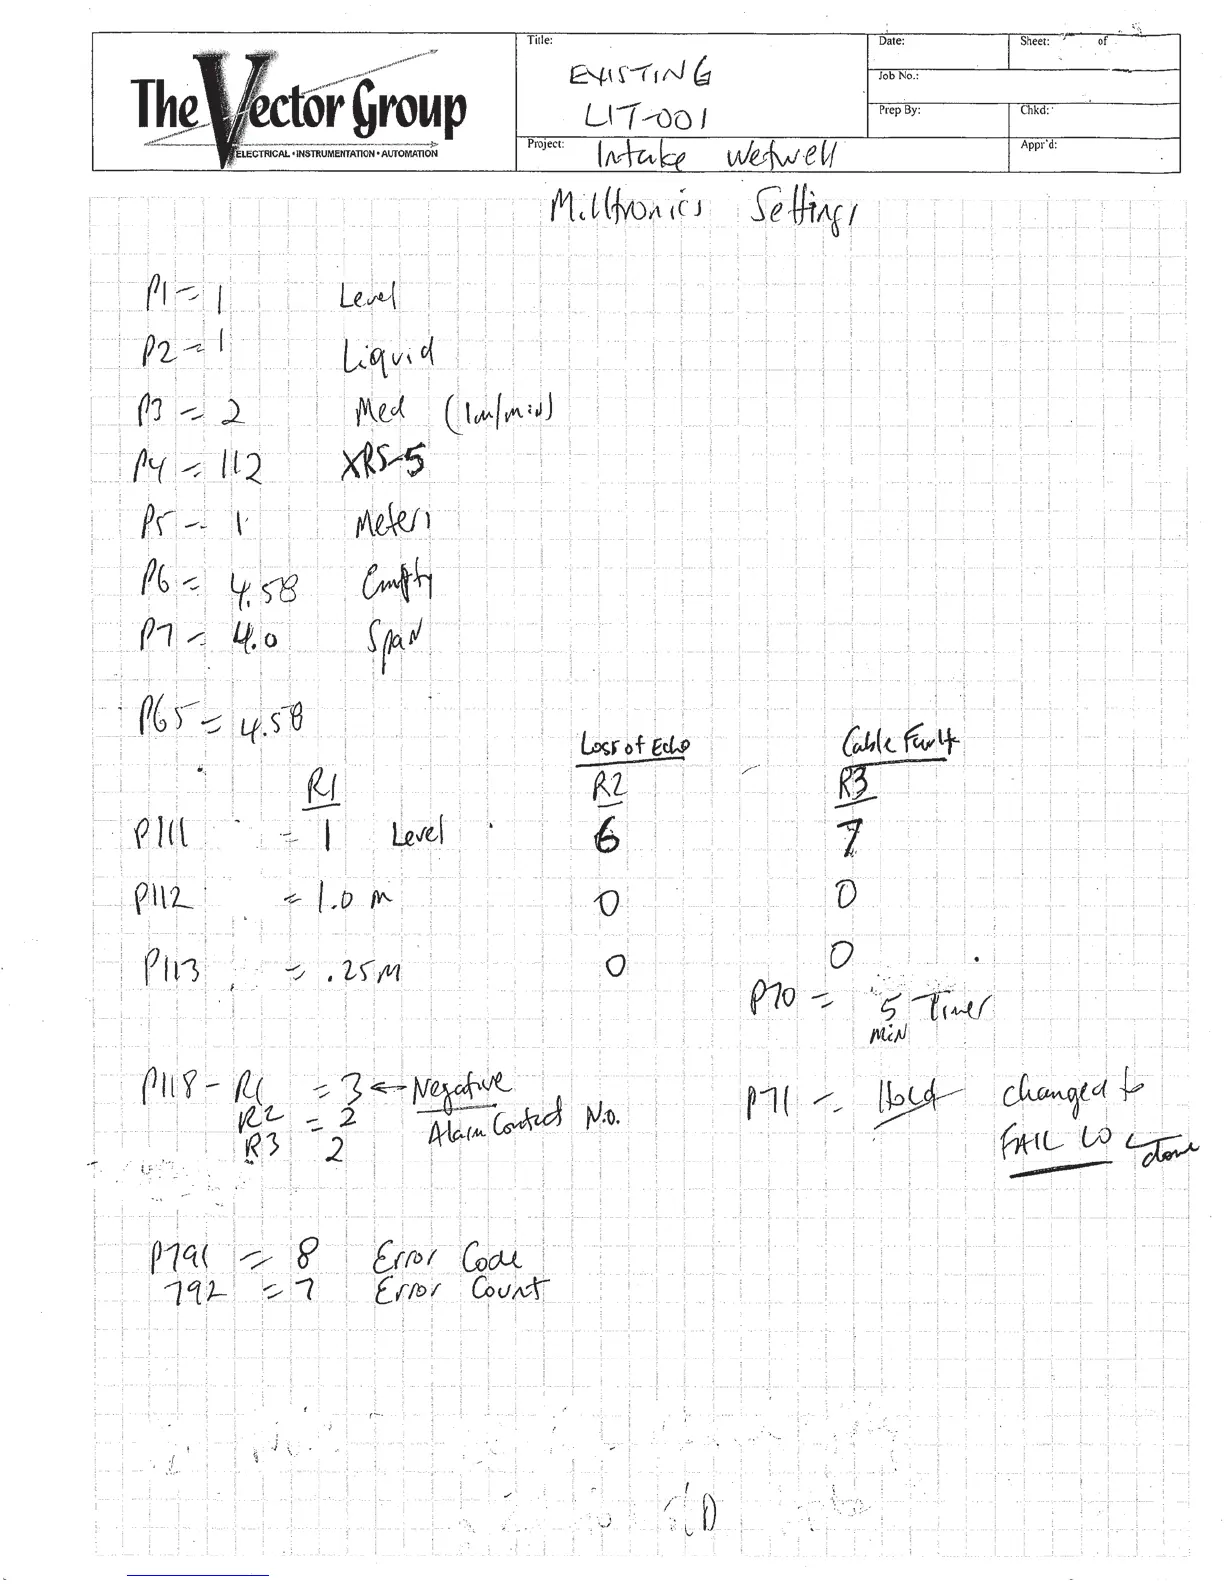 The Vector Group
ELECTRICAL • INSTRUMENTATION • AUTOMATION
Title:
EXISTING
LIT-001
Project: Intake Wetwell
Date:
Sheet: of
Job No.:
Prep By:
Chkd:
Appr'd:
Milltronics Settings
P1 = 1 Level
P2 = 1 Liquid
P3 = 2 Med (1m/min)
P4 = 112 XRS-5
P5 - 1 Meters
P6 = 4.58 Empty
P7 = 4.0 Span
P65 = 4.58
Loss of Echo Cable Fault
R1 R2 R3
P111 = 1 Level 6 7
P112 = 1.0 m 0 0
P113 = .25M 0 0
P70 = 5 Timer
MiN
P118 - R1 = 3 ← Negative
R2 = 2 Alarm Contact N.O.
R3 2
P71 = Hold changed to
FAIL LO ← done
P791 = 8 Error Code
792 = 7 Error Count